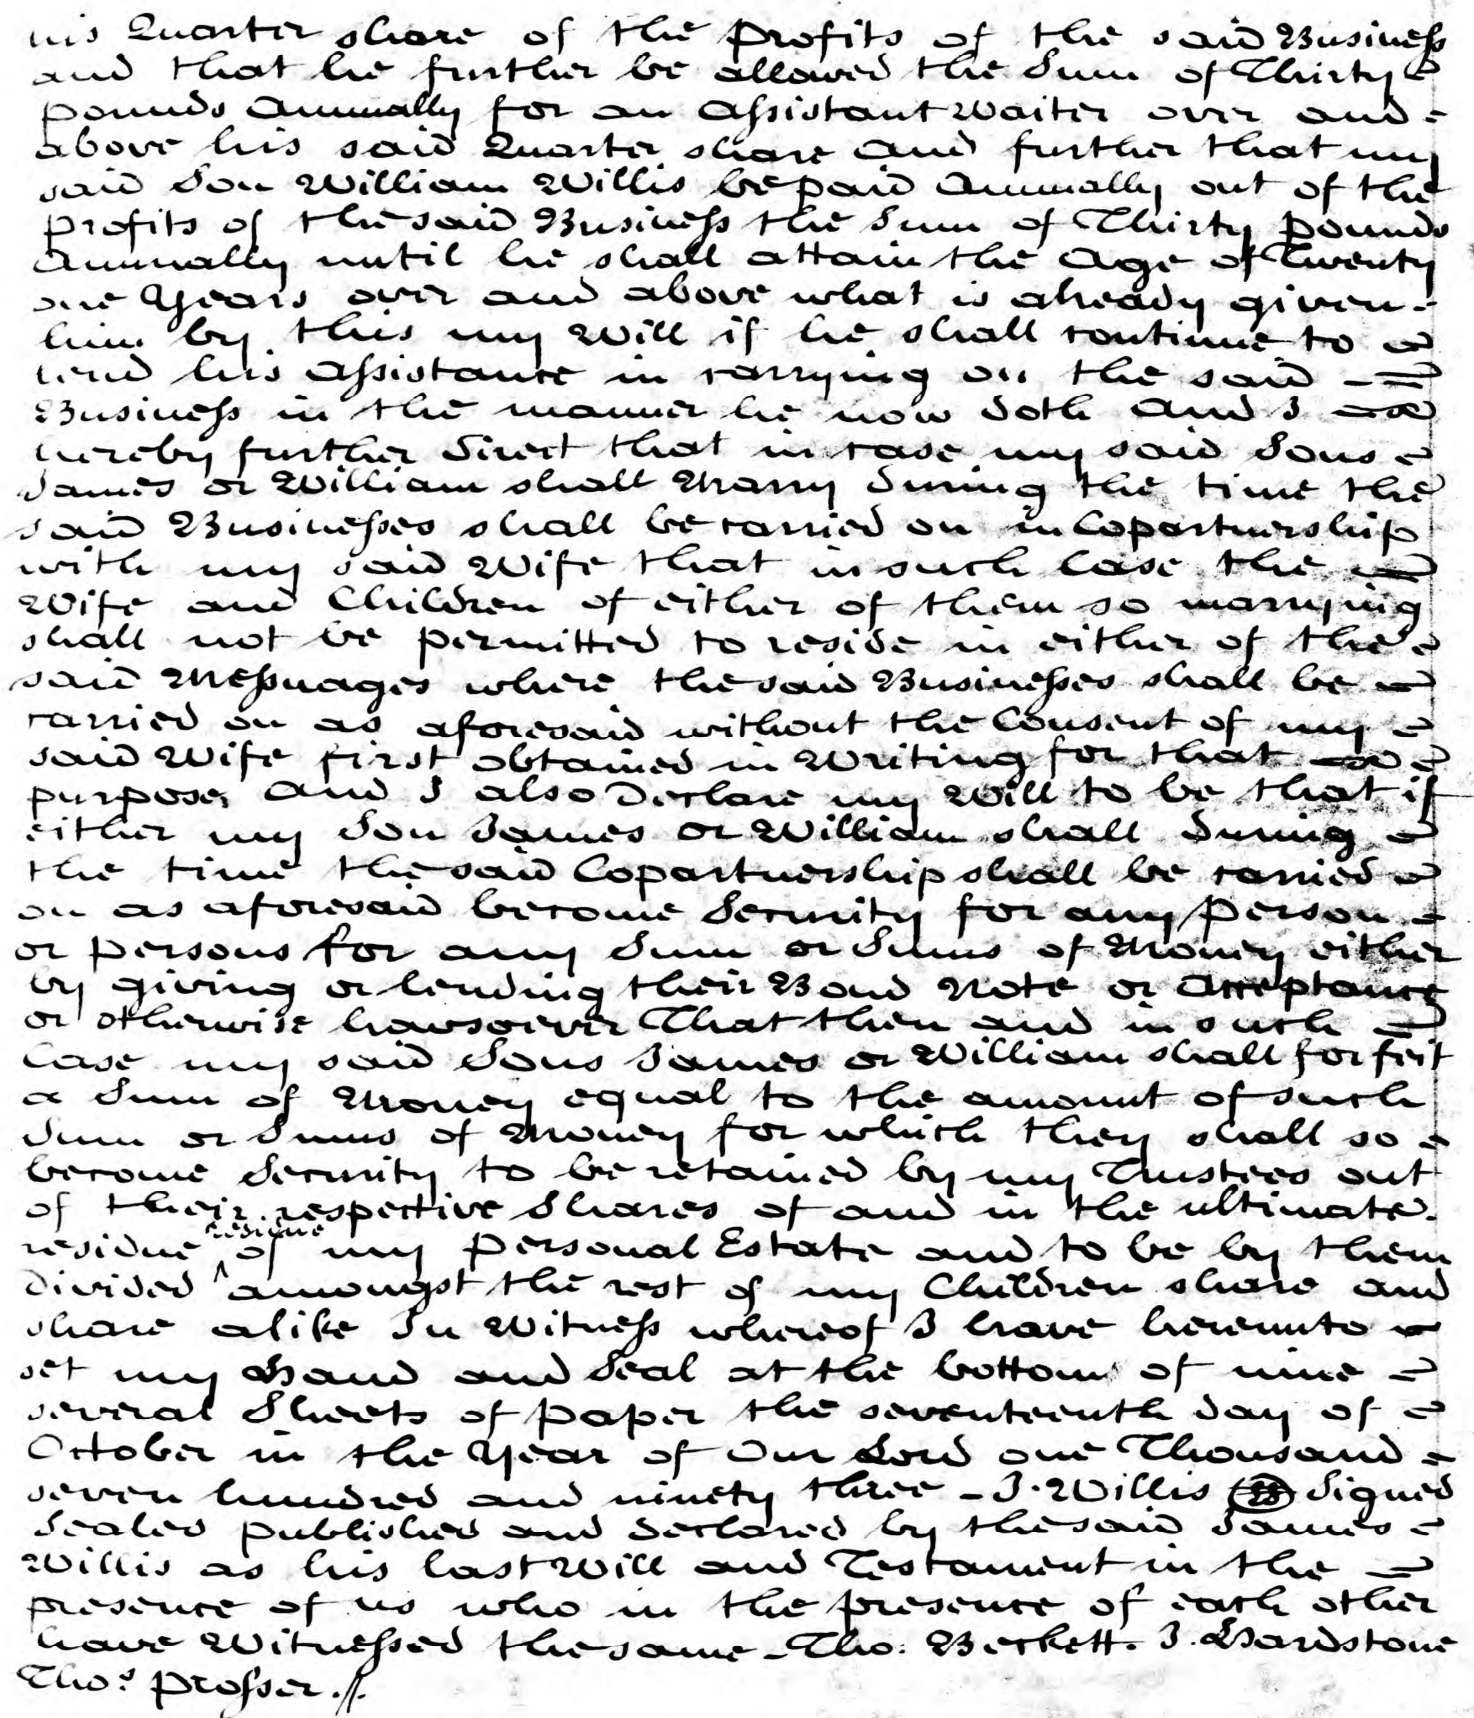 his Quarter share of the profits of the said Business
and that he further be allowed the Sum of Thirty
pounds Annually for an Assistant Waiter over and
above his said Quarter share And further that my
said Son William Willis be paid Annually out of the
profits of the said Business the Sum of Thirty pounds
Annually until he shall attain the Age of Twenty
one Years over and above what is already given
him by this my Will if he shall continue to
lend his Assistance in carrying on the said
Business in the manner he now doth And I
hereby further direct that in case my said Sons
James or William shall Marry during the time the
said Businesses shall be carried on in Copartnership
with my said Wife that in such Case the
Wife and Children of either of them so marrying
shall not be permitted to reside in either of the
said Messuages where the said Businesses shall be
carried on as aforesaid without the Consent of my
said Wife first obtained in Writing for that
purpose And I also Declare my Will to be that if
either my Son James or William shall during
the time the said Copartnership shall be carried
on as aforesaid become Security for any person
or persons for any Sum or Sums of Money either
by giving or lending their Bond Note or Acceptance
or otherwise howsoever That then and in such
Case my said Sons James or William shall forfeit
a Sum of Money equal to the amount of such
Sum or Sums of Money for which they shall so
become Security to be retained by my Trustees out
of their respective Shares of and in the ultimate
residue
residue of my Personal Estate and to be by them
divided ^ amongst the rest of my Children share and
share alike In Witness whereof I have hereunto
set my Hand and Seal at the bottom of nine
several Sheets of paper the seventeenth day of
October in the Year of Our Lord one Thousand
seven hundred and ninety three - J. Willis Signed
Sealed published and declared by the said James
Willis as his last Will and Testament in the
presence of us who in the presence of each other
have Witnessed the same - Tho: Beckett. J. Hardstone
Tho.s Prosser.//.